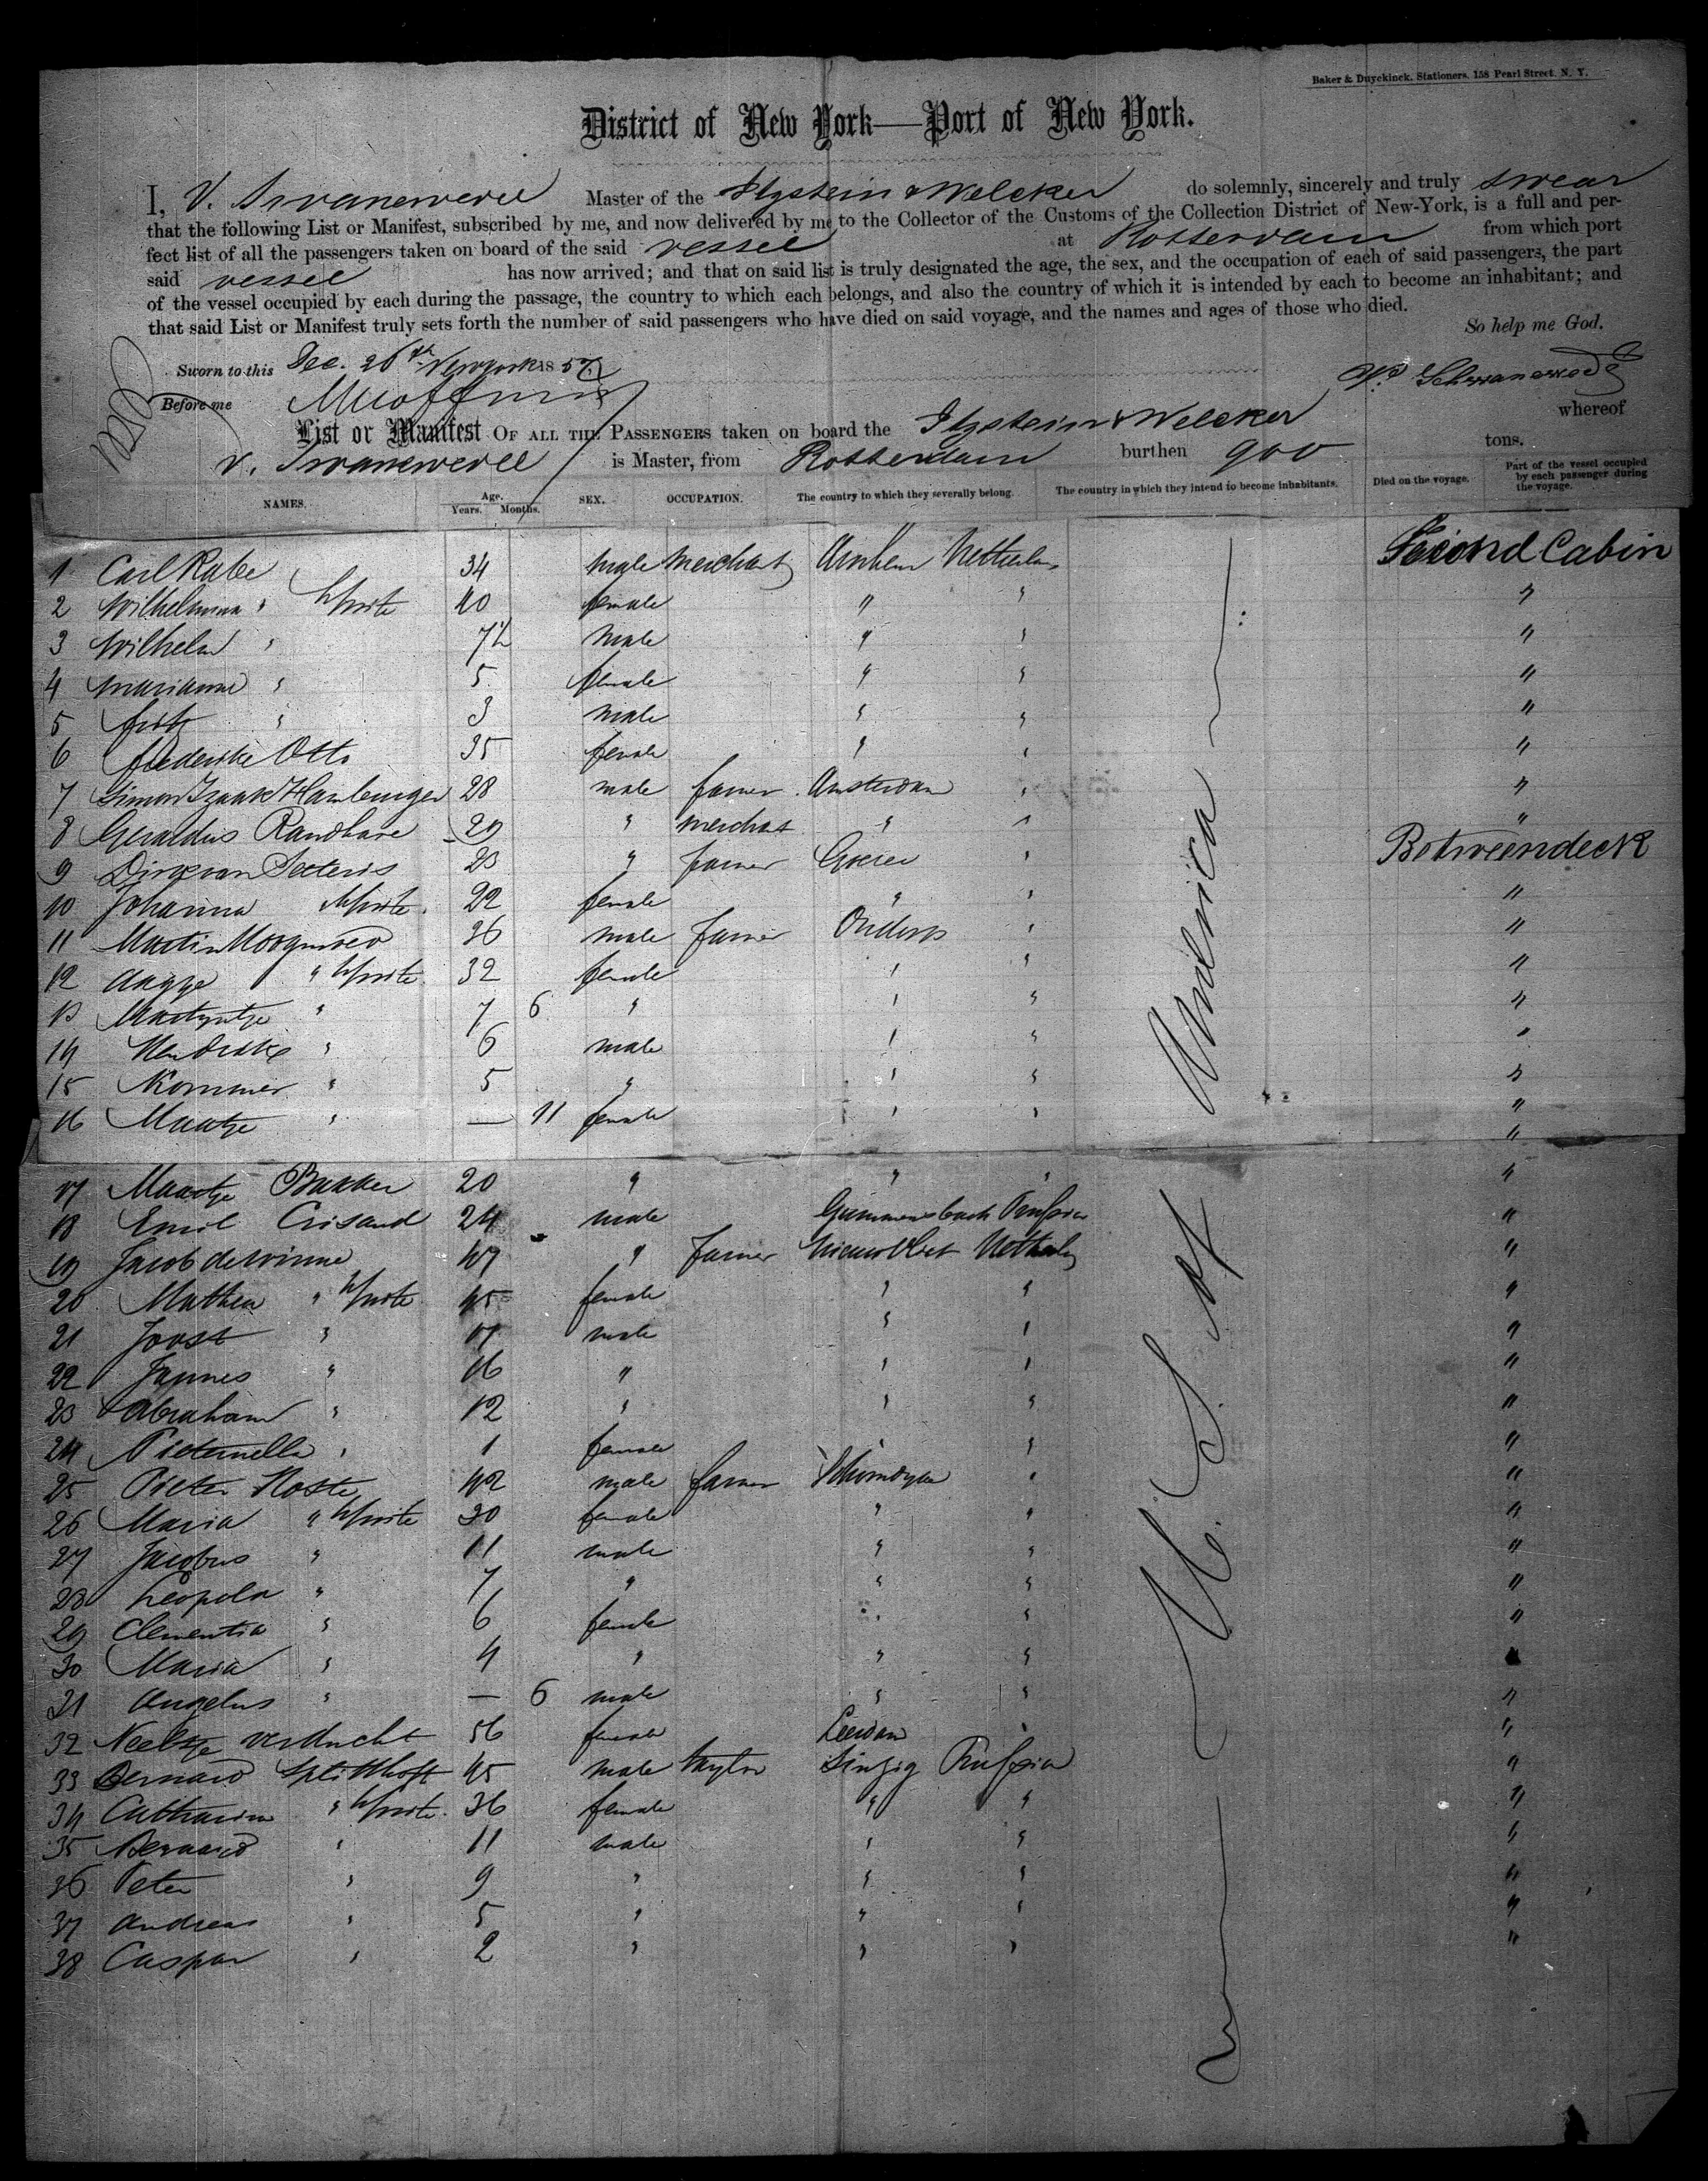 Baker & Duyckinck, Stationers, 158 Pearl Street, N. Y.
District of New York—Port of New York.
I, V. Swanewedel Master of the Ilzstein & Welcker do solemnly, sincerely and truly swear
that the following List or Manifest, subscribed by me, and now delivered by me to the Collector of the Customs of the Collection District of New-York, is a full and per-
fect list of all the passengers taken on board of the said vessel at Rotterdam from which port
said vessel has now arrived; and that on said list is truly designated the age, the sex, and the occupation of each of said passengers, the part
of the vessel occupied by each during the passage, the country to which each belongs, and also the country of which it is intended by each to become an inhabitant; and
that said List or Manifest truly sets forth the number of said passengers who have died on said voyage, and the names and ages of those who died.
So help me God.
Sworn to this Dec. 26th Newyork 1857
Before me
List or Manifest OF ALL THE PASSENGERS taken on board the Ilzstein & Welcker whereof
is Master, from Rotterdam burthen 900 tons.
NAMES. Age. Years. Months. SEX. OCCUPATION. The country to which they severally belong. The country in which they intend to become inhabitants. Died on the voyage. Part of the vessel occupied by each passenger during the voyage.
1 Carl Rabe 34 male merchant Arnhem Netherlan Second Cabin
2 Wilhelmina " 40 female " " "
3 Wilhelm " 7½ male " " "
4 Marianne " 5 female " " "
5 Fritz " 3 male " " "
6 Frederike Otto 35 female " " "
7 Simon Izaak Hamburger 28 male farmer Amsterdam " "
8 Geraldus 29 " merchat " " "
9 Dirk van 23 " farmer Goeree " Betweendeck
10 Johanna 22 female " " "
11 Martin 36 male farmer " "
12 Aagje " 32 female " " "
13 Martyntje " 7 6 " " " "
14 Hendrike " 6 male " " "
15 Kommer " 5 " " " "
16 Maatje " — 11 female " " "
17 Maatje Bakker 20 " " " "
18 Emil Crisand 24 male Gummersbach Prussia "
19 Jacob de Winne 47 " farmer Nieuwvliet Netherlan "
20 Mathea " 45 female " " "
21 Joost " 17 male " " "
22 Jannes " 16 " " " "
23 Abraham " 12 " " " "
24 Pieternella " 1 female " " "
25 Pieter Hoste 42 male farmer " "
26 Maria " 30 female " " "
27 Jacobus " 11 male " " "
28 Leopold " 7 " " " "
29 Clementia " 6 female " " "
30 Maria " 4 " " " "
31 Angelus " — 6 male " " "
32 Neeltje Verducht 56 female Leerdam " "
33 Bernard Splitthoff 45 male taylor Sinzig Prussia "
34 Catharina " 36 female " " "
35 Bernard " 11 male " " "
36 Peter " 9 " " " "
37 Andreas " 5 " " " "
38 Caspar " 2 " " " "
U. S. of America